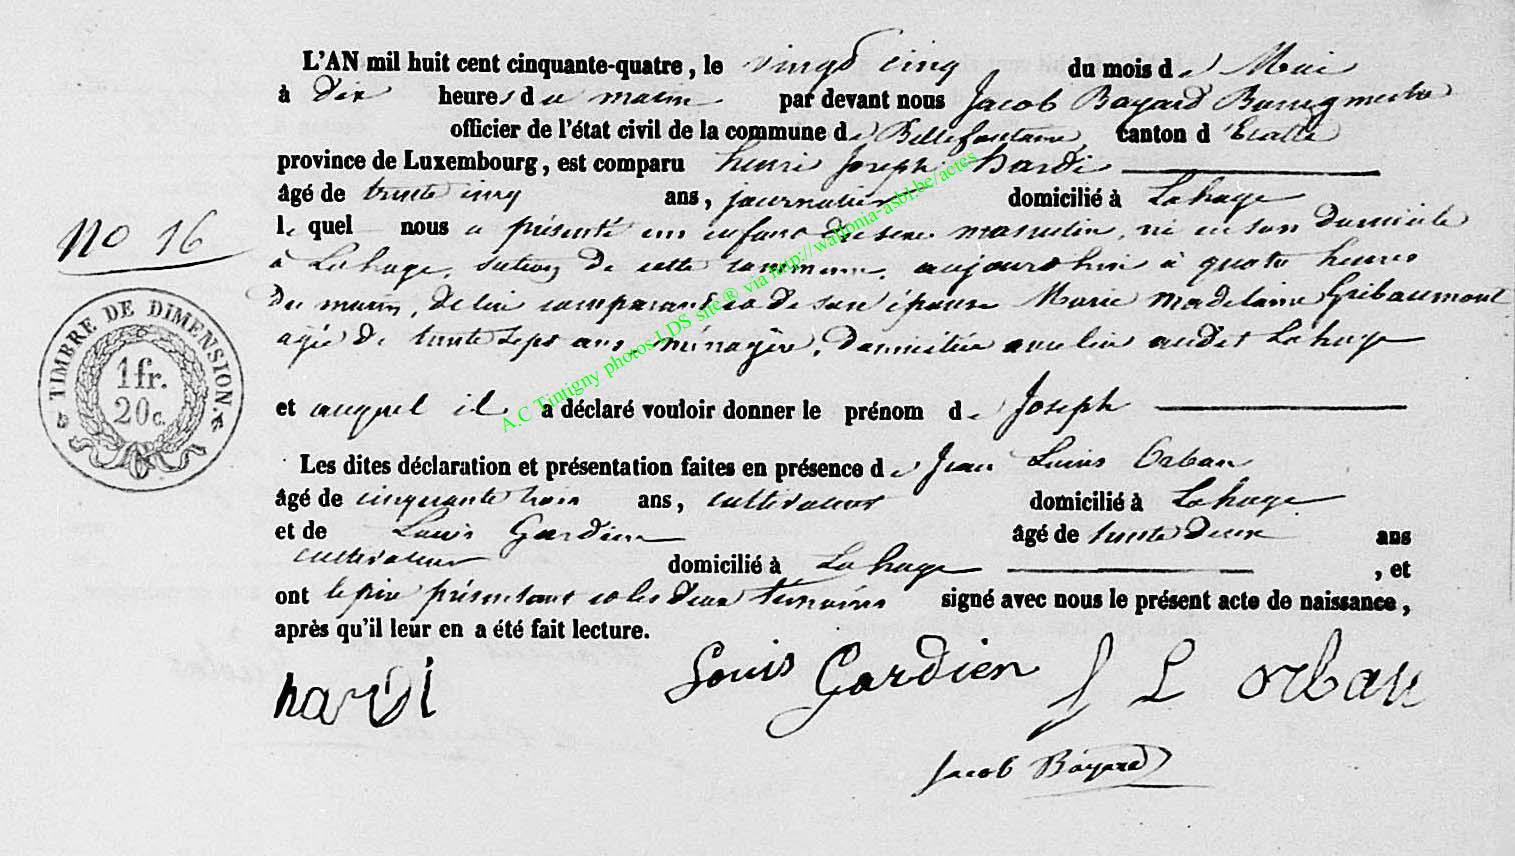 L'AN mil huit cent cinquante-quatre, le vingt cinq du mois de Mai
à dix heures du matin par devant nous Jacob Bayard Bourgmestre
officier de l'état civil de la commune de Bellefontaine, canton d'Etalle
province de Luxembourg, est comparu henri Joseph hardi
âgé de trente cinq ans, journalier domicilié à Lahage
lequel nous a présenté un enfant de sexe masculin, né en son domicile
à Lahage, section de cette commune, aujourd'hui à quatre heures
du matin, de lui comparant et de son épouse Marie Madelaine Gribaumont
agée de trente sept ans, ménagère, domiciliée avec lui audit Lahage
et auquel il a déclaré vouloir donner le prénom de Joseph
Les dites déclaration et présentation faites en présence de Jean Louis Orban
âgé de cinquante trois ans, cultivateur domicilié à Lahage
et de Louis Gardien âgé de trente deux ans
cultivateur domicilié à Lahage, et
ont le père présentant et les deux témoins signé avec nous le présent acte de naissance,
après qu'il leur en a été fait lecture.
hardi Louis Gardien J L orban
Jacob Bayard
no 16
TIMBRE DE DIMENSION
1 fr.
20 c.
A.C Tintigny photos LDS site® via http://wallonia-asbl.be/actes